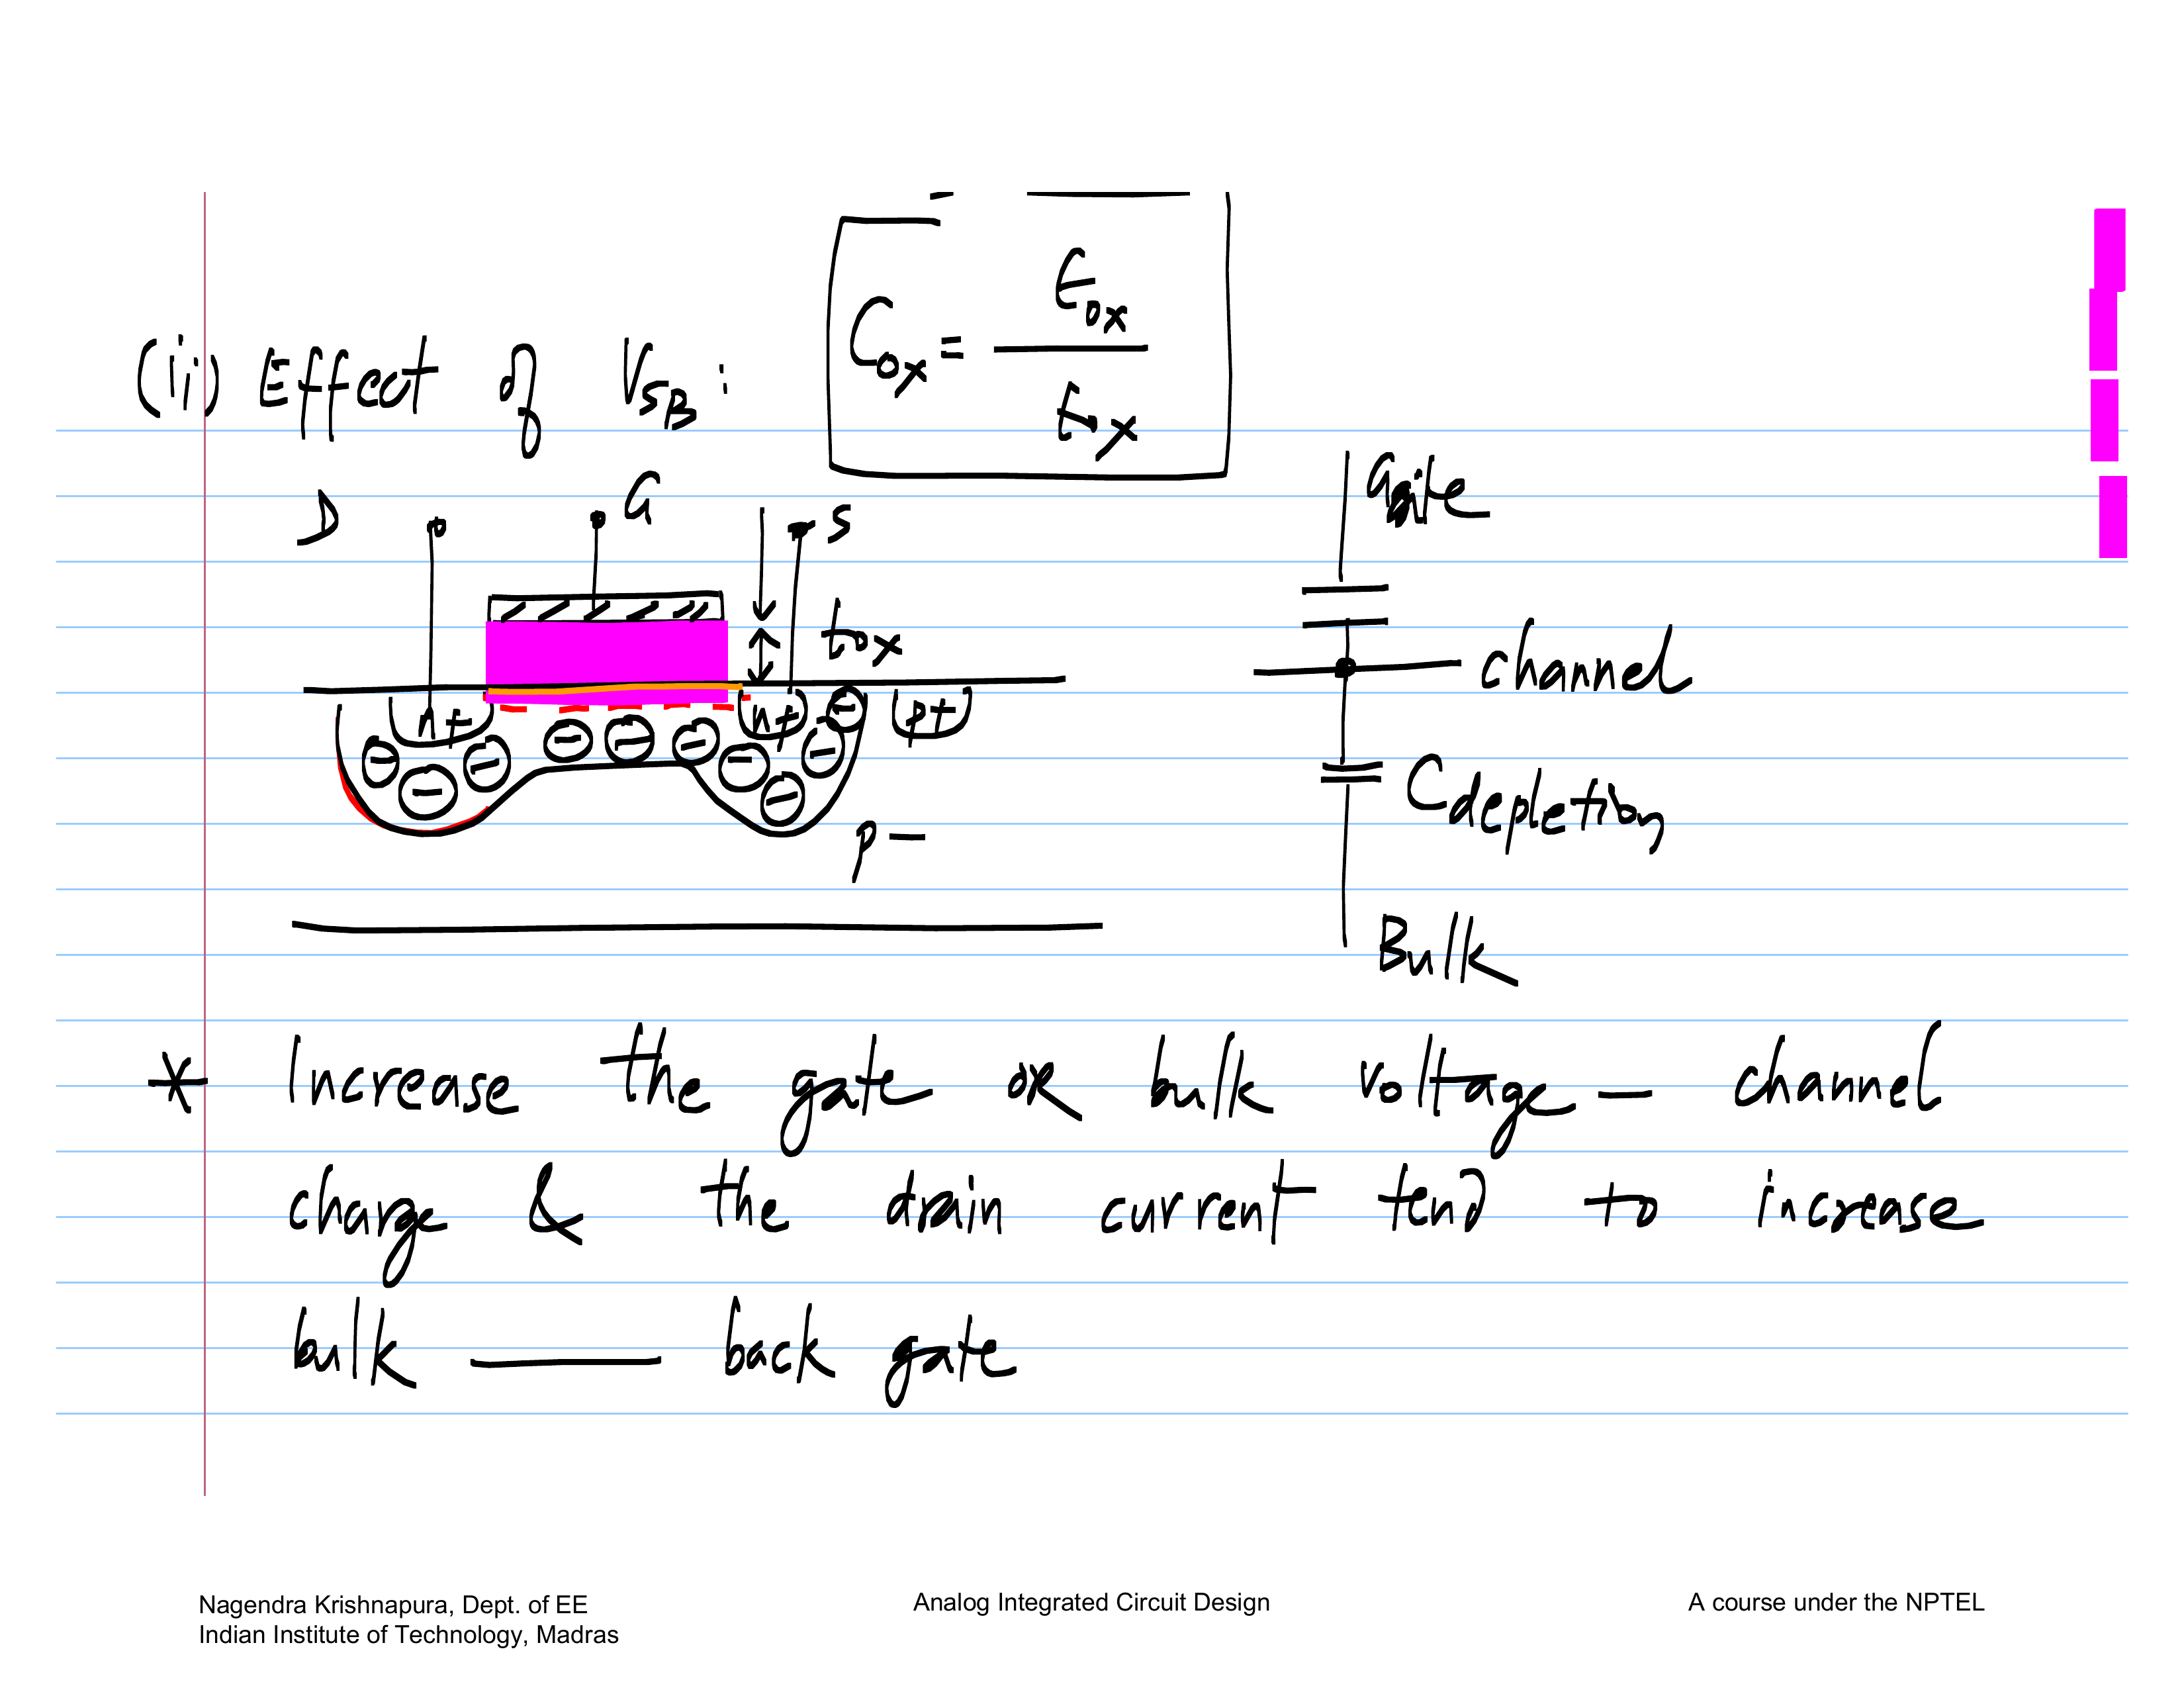 (ii) Effect of VSB :
Cox = Єox / tox
D
G
S
tox
n+
n+
p+
⊖ ⊖ ⊖ ⊖ ⊖ ⊖ ⊖ ⊖ ⊖ ⊖
p-
Gate
channel
Cdepletion
Bulk
* Increase the gate or bulk voltage — channel
charge & the drain current tend to increase
bulk — back gate
Nagendra Krishnapura, Dept. of EE
Indian Institute of Technology, Madras
Analog Integrated Circuit Design
A course under the NPTEL